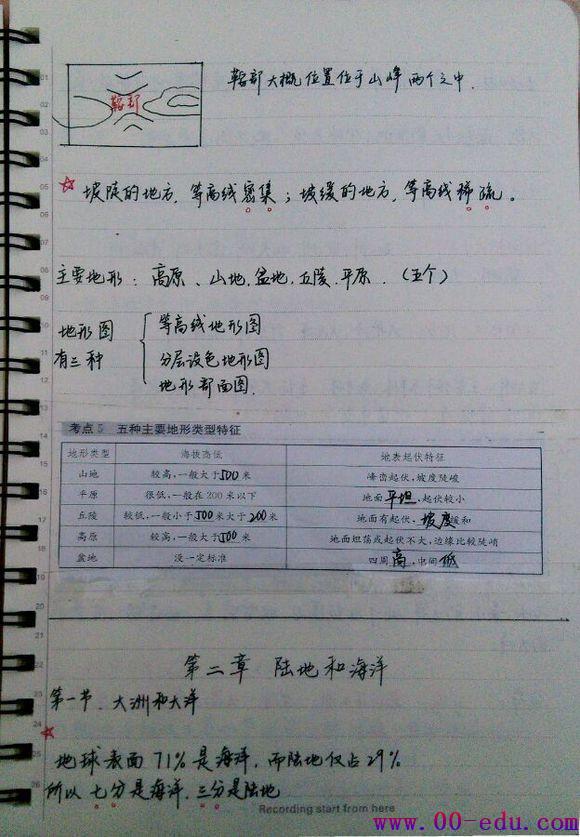 鞍部
鞍部大概位置位于山峰两个之中.
坡陡的地方,等高线密集;坡缓的地方,等高线稀疏。
主要地形:高原、山地,盆地,丘陵,平原.(五个)
地形图
有三种
等高线地形图
分层设色地形图
地形部面图
考点5 五种主要地形类型特征
地形类型 海拔高低 地表起伏特征
山地 较高,一般大于500米 峰峦起伏,坡度陡峻
平原 很低,一般在200米以下 地面平坦,起伏较小
丘陵 较低,一般小于500米大于200米 地面有起伏,坡度缓和
高原 较高,一般大于500米 地面坦荡或起伏不大,边缘比较陡峭
盆地 没一定标准 四周高,中间低
第二章 陆地和海洋
第一节.大洲和大洋
地球表面71%是海洋,而陆地仅占29%
所以七分是海洋,三分是陆地
Recording start from here
www.00-edu.com